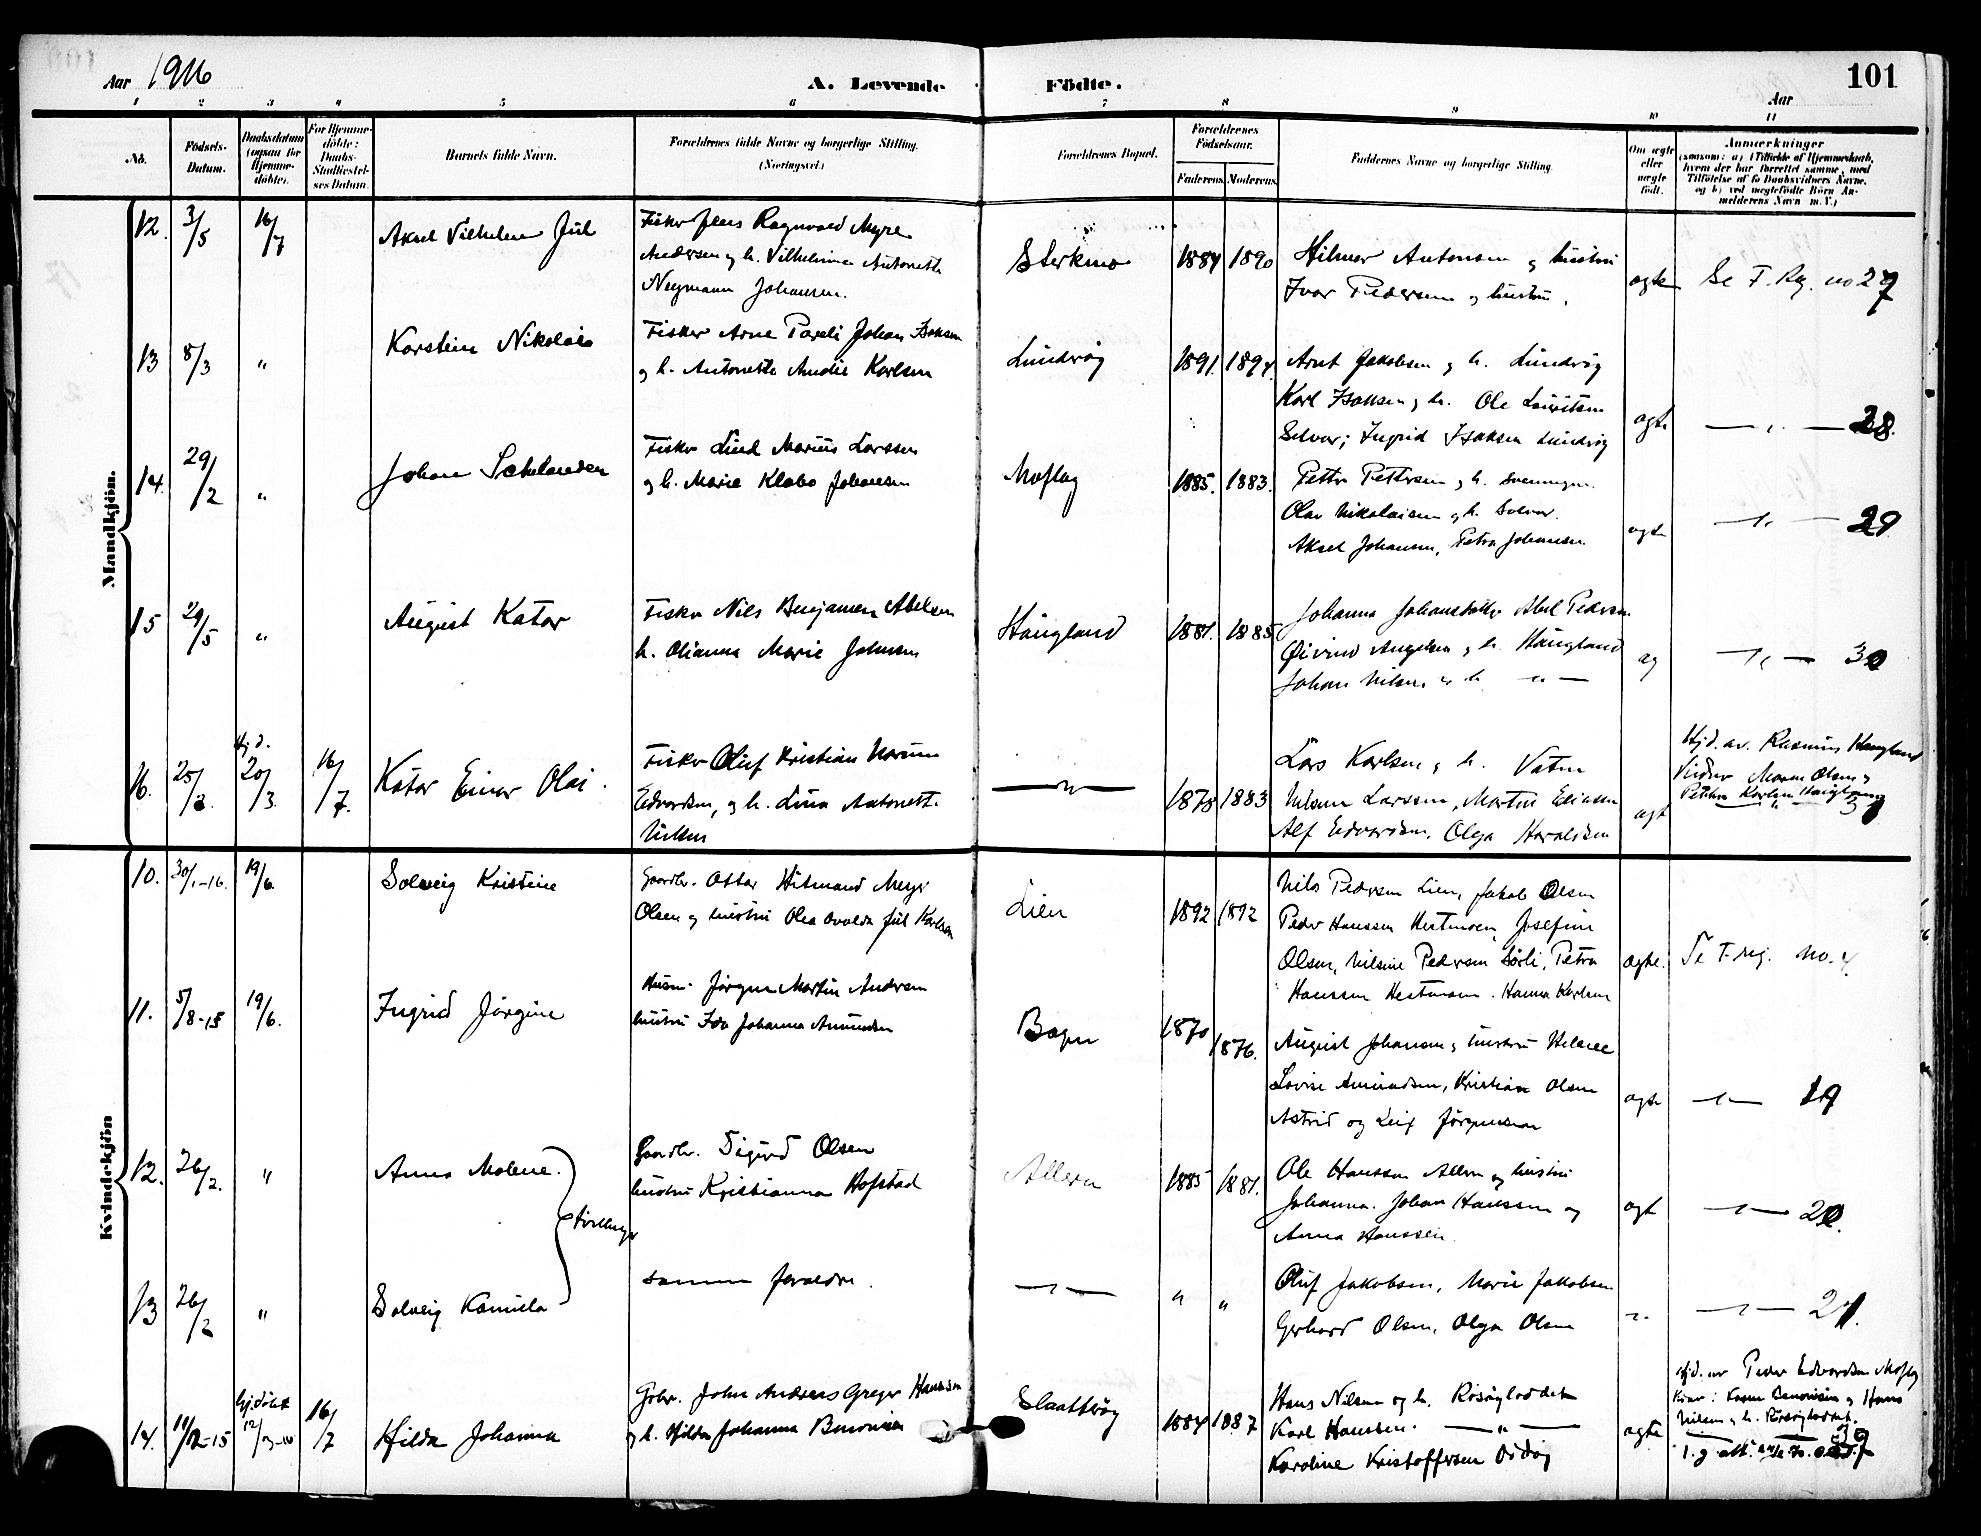 Aar 1916
A. Levende Födte.
101
Aar
1 2 3 4 5 6 7 8 9 10 11
No.
Födsels-
Datum.
Daabsdatum
(ogsaa for
Hjemme-
døbte).
For Hjemme-
döbte:
Daabs-
Stadfæstel-
ses Datum.
Barnets fulde Navn.
Forældrenes fulde Navne og borgerlige Stilling.
(Næringsvei.)
Forældrenes Bopæl.
Forældrenes
Födselsaar.
Faderens. Moderens.
Faddernes Navne og borgerlige Stilling.
Om ægte
eller
uægte
födt.
Anmærkninger
(saasom: a) i Tilfælde af Hjemmedaab,
hvem der har forrettet samme, med
Tilföielse af to Daabsvidners Navne,
og b) ved uægtefödte Börn An-
melderens Navn m. V.)
Mandkjön.
12. 3/5 16/7 Aksel Vilhelm Jul
Fisker Jens Ragnvald Myre
Andersen og h. Vilhelmine Antonette
Neymann Johansen.
Sterkmo 1884 1890
Hilmer Antonsen og hustru
Ivar Pedersen og hustru.
ægte Se F. Rg. no 27
13 8/3 " Karstein Nikolai
Fisker Arne Pareli Johan Isaksen
og h. Antonette Amalie Karlsen
Lundvög 1891. 1894.
Arnt Jakobsen og h. Lundvög
Karl Isaksen og h. Ole Lauritsen
Selvar; Ingrid Isaksen Lundvög
ægte — " — 28.
14. 29/2 " Johan Selander
Fisker Lind Marius Larssen
og h. Marie Klabo Johansen
Moflag 1885. 1883.
Petter Pettersen og h. Svenningen.
Olav Nikolaisen og h. Selvar.
Aksel Johansen, Petra Johansen.
ægte — " — 29.
15 29/5 " August Kator
Fisker Nils Benjamin Abelsen
h. Olianna Marie Johnsen
Haugland 1881. 1885
Johanna Johansdatter Abel Pedersen
Øivind Angelsen og h. Haugland
Johan Nilsen og h. — " —
æg — " — 30
16. 25/2. Hjd. 20/3. 16/7. Kator Einar Olai.
Fisker Oluf Kristian Norum
Edvardsen, og h. Lina Antonette
Nilsen
— " — 1878 1883
Lars Karlsen og h. Vaten
Nilsen Larssen, Martin Eliassen
Alf Edvardsen, Olga Haraldsen
ægt
Hjd. av. Rasmus Haugland
Vidner Maren Olsen og
Petter Karlsen Haugland
— " — 31
Kvindekjön
10. 30/1-16. 19/6. Solveig Kristine
Gaardbr. Ottar Hitmand Meyer
Olsen og hustru Olea Ovalda Jul Karlsen
Lien 1892 1892
Nils Pedersen Lien, Jakob Olsen
Peder Hanssen Hestmoen, Josefine
Olsen, Nilsine Pedersen Sörli, Petra
Hanssen Hestmoen. Hanna Karlsen
ægte. Se F. reg. no. 4
11. 5/8-15 19/6. Ingrid Jörgine
Husm. Jörgen Martin Andersen
hustru Ida Johanna Amundsen
Bogen 1870 1876.
August Johansen og hustru Helene
Lovise Amundsen, Kristian Olsen
Astrid og Leif Jörgensen
ægte — " — 19
12. 26/2. " Anna Malene. Tvillinger
Gaardbr. Sigurd Olsen
hustru Kristianna Hofstad
Alleren 1885 1881.
Ole Hanssen Alleren og hustru
Johanna. Johan Hanssen og
Anna Hanssen
ægt — " — 20.
13 26/2 " Solveig Kamilla
samme forældre.
— " — " "
Oluf Jakobsen, Marie Jakobsen
Gerhard Olsen, Olga Olsen
" — " — 21.
14. 11/12-15 hjdöbt 12/12-15 16/7 Hilda Johanna
Gbr. John Andreas Greger Hanssen
og h. Hilda Johanna Benonisen
Slaattvög 1884 1887
Hans Nilsen og h. Rösögloddet
Karl Hanssen. — " —
Karoline Kristoffersen Vidög
ægte
Hjd. av Peder Edvardsen Moflag
Kone: Karen Benonisen og Hans
Nilsen og h. Rösögloddet.